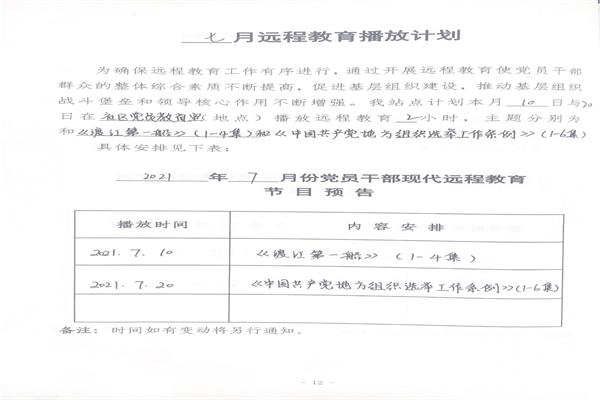 七月远程教育播放计划
为确保远程教育工作有序进行，通过开展远程教育使党员干部
群众的整体综合素质不断提高，促进基层组织建设，推动基层组织
战斗堡垒和领导核心作用不断增强。我站点计划本月10日与20
日在社区党员教育室（地点）播放远程教育2小时，主题分别为
和《渡江第一船》（1-4集）和《中国共产党地方组织选举工作条例》（1-6集）
具体安排见下表：
2021年7月份党员干部现代远程教育
节目预告
播放时间 内容安排
2021.7.10 《渡江第一船》（1-4集）
2021.7.20 《中国共产党地方组织选举工作条例》（1-6集）
备注：时间如有变动将另行通知。
- 12 -